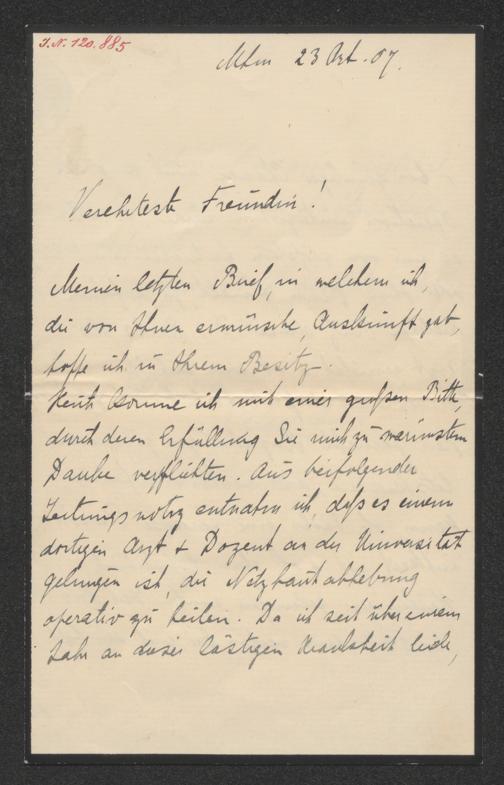 I.N. 120.885
23 Okt. 07.
Verehrteste Freundin!
Meinen letzten Brief, in welchem ich,
die von Ihnen erwünschte, Auskunft gab,
hoffe ich in Ihrem Besitz.
Heute komme ich mit einer großen Bitte,
durch deren Erfüllung Sie mich zu wärmstem
Danke verpflichten. Aus beifolgender
Zeitungsnotiz entnahm ich, daß es einem
dortigen Arzt + Dozent an der Universität
gelungen ist, die Netzhautabhebung
operativ zu heilen. Da ich seit über einem
Jahr an dieser lästigen Krankheit leide,